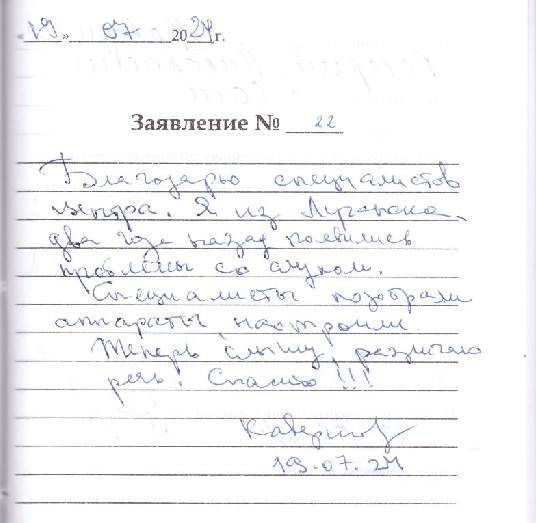 19 » 07 2024 г.
Заявление № 22
Благодарю специалистов
центра. Я из Луганска,
два года назад появились
проблемы со слухом.
Специалисты подобрали
аппараты, настроили
Теперь слышу, различаю
речь. Спасибо!!!
19.07.24